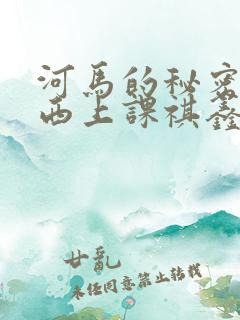 河馬的秘密
西上課祺鑫
廿亂
未任同意禁止轉載